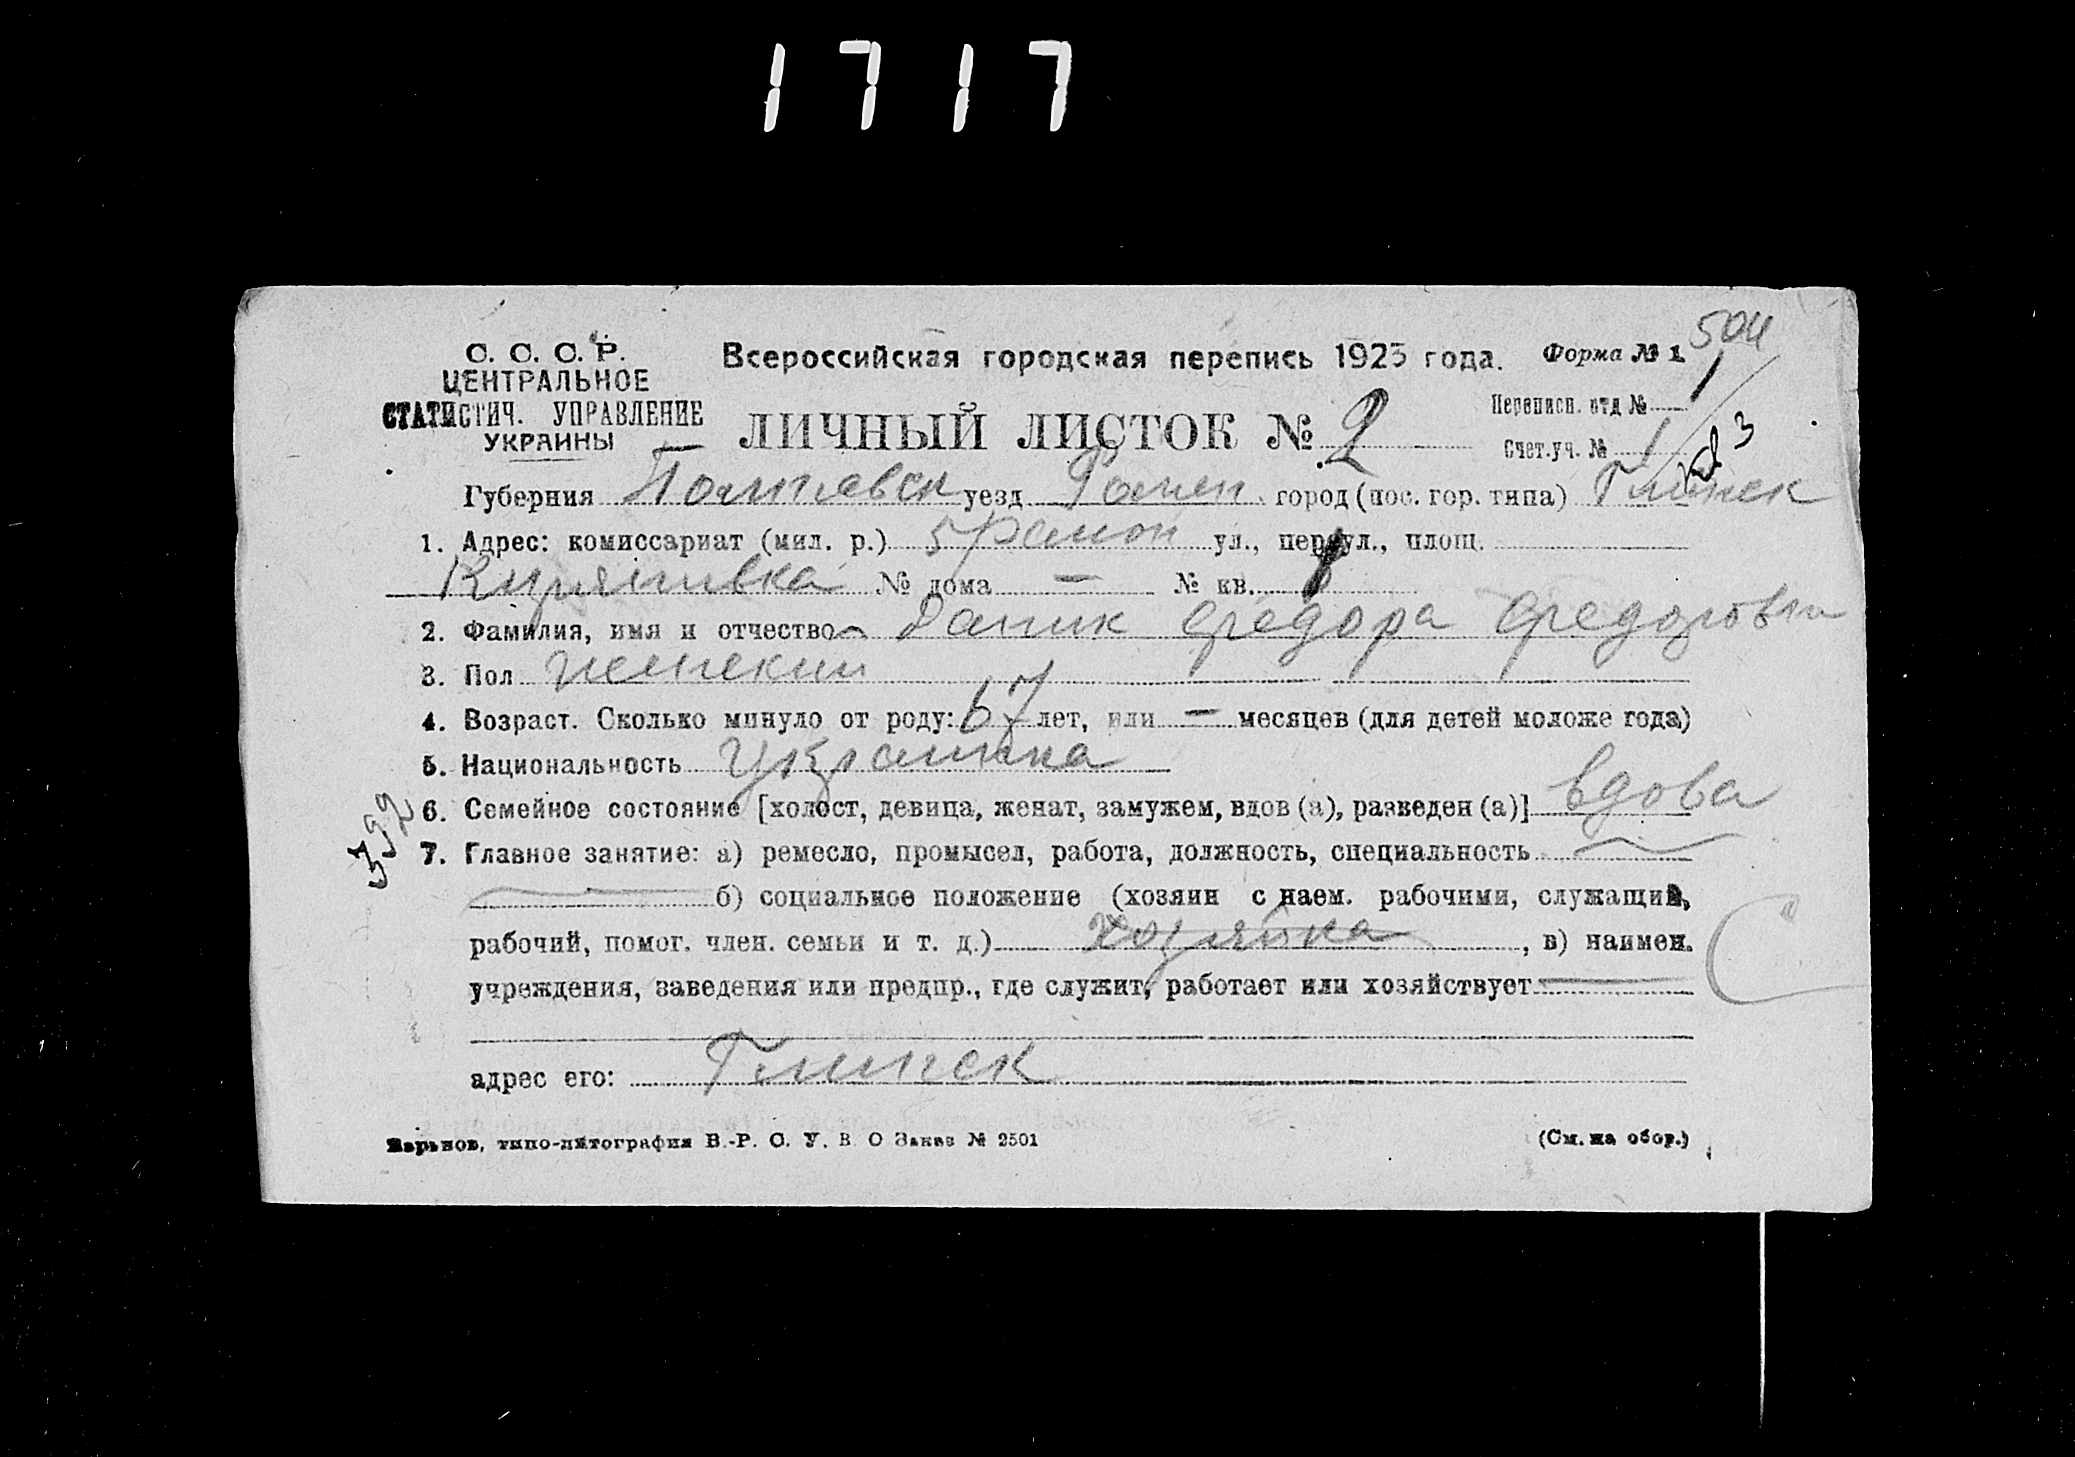 1717
504
С. С. С. Р.
ЦЕНТРАЛЬНОЕ
СТАТИСТИЧ. УПРАВЛЕНИЕ
УКРАИНЫ
Всероссийская городская перепись 1923 года.
Форма № 1
ЛИЧНЫЙ ЛИСТОК № 2
Переписн. отд № 1
Счет.уч. № 1
3
Губерния Полтавск уезд Ромен город (пос. гор. типа) Глинск
1. Адрес: комиссариат (мил. р.) 5 район ул., переул., площ.
№ дома — № кв.
2. Фамилия, имя и отчество Даник Федора Федоровна
3. Пол женский
4. Возраст. Сколько минуло от роду: 67 лет, или — месяцев (для детей моложе года)
5. Национальность Украинка
6. Семейное состояние [холост, девица, женат, замужем, вдов (а), разведен (а)] вдова
7. Главное занятие: а) ремесло, промысел, работа, должность, специальность
б) социальное положение (хозяин с наем. рабочими, служащий,
рабочий, помог. член. семьи и т. д.) хозяйка, в) наимен.
учреждения, заведения или предпр., где служит, работает или хозяйствует
адрес его: Глинск
Харьков, типо-литография В.-Р. С. У. В. О Заказ № 2501
(См. на обор.)